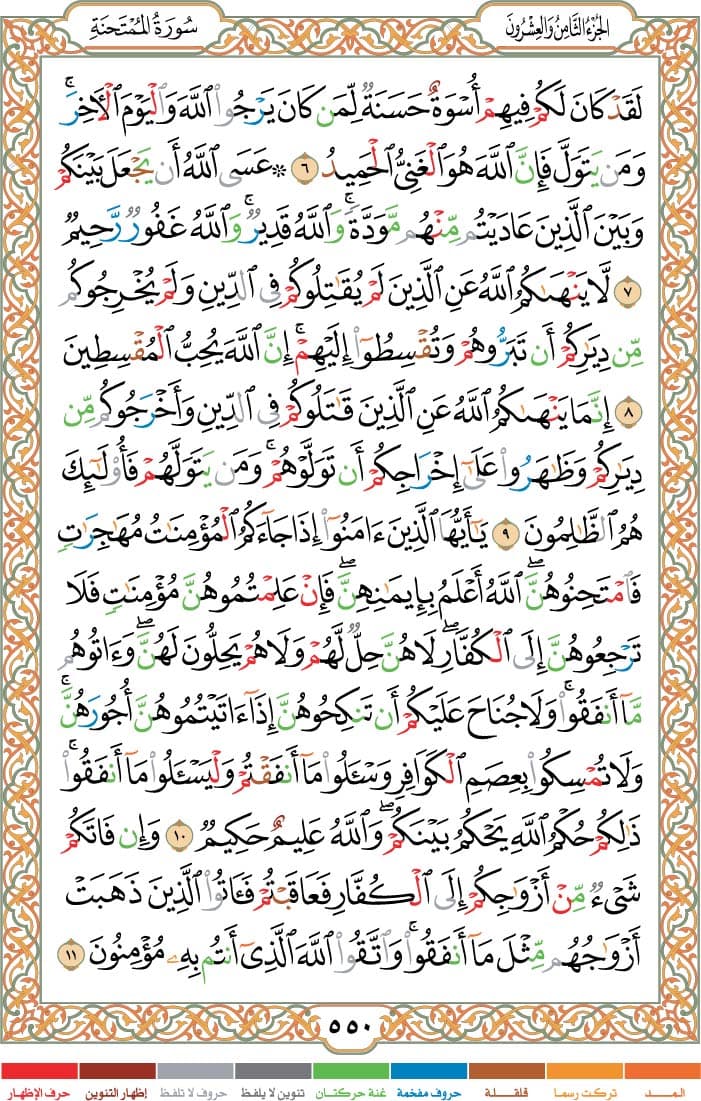 الجُزْءُ الثَّامِنُ وَالعِشْرُونَ
سُورَةُ المُمْتَحنَةِ
لَقَدْ كَانَ لَكُمْ فِيهِمْ أُسْوَةٌ حَسَنَةٌ لِّمَن كَانَ يَرْجُوا۟ ٱللَّهَ وَٱلْيَوْمَ ٱلْأَخِرَ ۚ
وَمَن يَتَوَلَّ فَإِنَّ ٱللَّهَ هُوَ ٱلْغَنِىُّ ٱلْحَمِيدُ ٦ ۞ عَسَى ٱللَّهُ أَن يَجْعَلَ بَيْنَكُمْ
وَبَيْنَ ٱلَّذِينَ عَادَيْتُم مِّنْهُم مَّوَدَّةً ۚ وَٱللَّهُ قَدِيرٌ ۚ وَٱللَّهُ غَفُورٌ رَّحِيمٌ
٧ لَّا يَنْهَىٰكُمُ ٱللَّهُ عَنِ ٱلَّذِينَ لَمْ يُقَـٰتِلُوكُمْ فِى ٱلدِّينِ وَلَمْ يُخْرِجُوكُم
مِّن دِيَـٰرِكُمْ أَن تَبَرُّوهُمْ وَتُقْسِطُوٓا۟ إِلَيْهِمْ ۚ إِنَّ ٱللَّهَ يُحِبُّ ٱلْمُقْسِطِينَ
٨ إِنَّمَا يَنْهَىٰكُمُ ٱللَّهُ عَنِ ٱلَّذِينَ قَـٰتَلُوكُمْ فِى ٱلدِّينِ وَأَخْرَجُوكُم مِّن
دِيَـٰرِكُمْ وَظَـٰهَرُوا۟ عَلَىٰٓ إِخْرَاجِكُمْ أَن تَوَلَّوْهُمْ ۚ وَمَن يَتَوَلَّهُمْ فَأُو۟لَـٰٓئِكَ
هُمُ ٱلظَّـٰلِمُونَ ٩ يَـٰٓأَيُّهَا ٱلَّذِينَ ءَامَنُوٓا۟ إِذَا جَآءَكُمُ ٱلْمُؤْمِنَـٰتُ مُهَـٰجِرَٰتٍ
فَٱمْتَحِنُوهُنَّ ۖ ٱللَّهُ أَعْلَمُ بِإِيمَـٰنِهِنَّ ۖ فَإِنْ عَلِمْتُمُوهُنَّ مُؤْمِنَـٰتٍ فَلَا
تَرْجِعُوهُنَّ إِلَى ٱلْكُفَّارِ ۖ لَا هُنَّ حِلٌّ لَّهُمْ وَلَا هُمْ يَحِلُّونَ لَهُنَّ ۖ وَءَاتُوهُم
مَّآ أَنفَقُوا۟ ۚ وَلَا جُنَاحَ عَلَيْكُمْ أَن تَنكِحُوهُنَّ إِذَآ ءَاتَيْتُمُوهُنَّ أُجُورَهُنَّ ۚ
وَلَا تُمْسِكُوا۟ بِعِصَمِ ٱلْكَوَافِرِ وَسْـَٔلُوا۟ مَآ أَنفَقْتُمْ وَلْيَسْـَٔلُوا۟ مَآ أَنفَقُوا۟ ۚ
ذَٰلِكُمْ حُكْمُ ٱللَّهِ يَحْكُمُ بَيْنَكُمْ ۖ وَٱللَّهُ عَلِيمٌ حَكِيمٌ ١٠ وَإِن فَاتَكُمْ
شَىْءٌ مِّنْ أَزْوَٰجِكُمْ إِلَى ٱلْكُفَّارِ فَعَاقَبْتُمْ فَـَٔاتُوا۟ ٱلَّذِينَ ذَهَبَتْ
أَزْوَٰجُهُم مِّثْلَ مَآ أَنفَقُوا۟ ۚ وَٱتَّقُوا۟ ٱللَّهَ ٱلَّذِىٓ أَنتُم بِهِۦ مُؤْمِنُونَ ١١
٥٥٠
المـــد تركت رسما قلقـــلة حروف مفخمة غنة حركتـان تنوين لا يلفظ حروف لا تلفظ إظهار التنوين حرف الإظهار